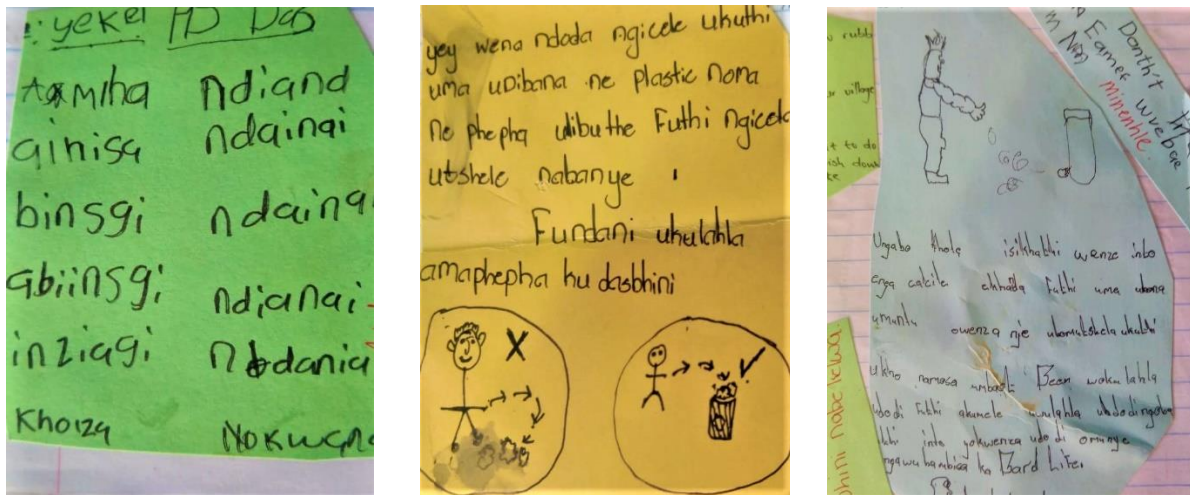 : yekel HD Das
miha ndiand
qinisa ndainai
binsgi ndainai
abiinsgi ndianai
inziagi nbdania
Khoiza Nokwana
yey wena ndoda ngicele ukuthi
uma udibana ne plastic noma
ne phepha ulibuthe Futhi ngicela
utshele nabanye
Fundani ukulahla
amaphepha ku dasbhini
rubb
village
t to do
ish down
Danth't
Eamef wrebae
m Nin
minenhle.
Ungabo thola isikhathi wenze into
enga calcile ekhada Futhi uma ubona
umuntu owenza nje ubomutshela ukuthi
ukho namosa Been wokulahla
udodi Futhi akumele uwulahla
into yokwenza udodi omunye
ngawuhambisa ko Bard Life.
bhini nabekelwa